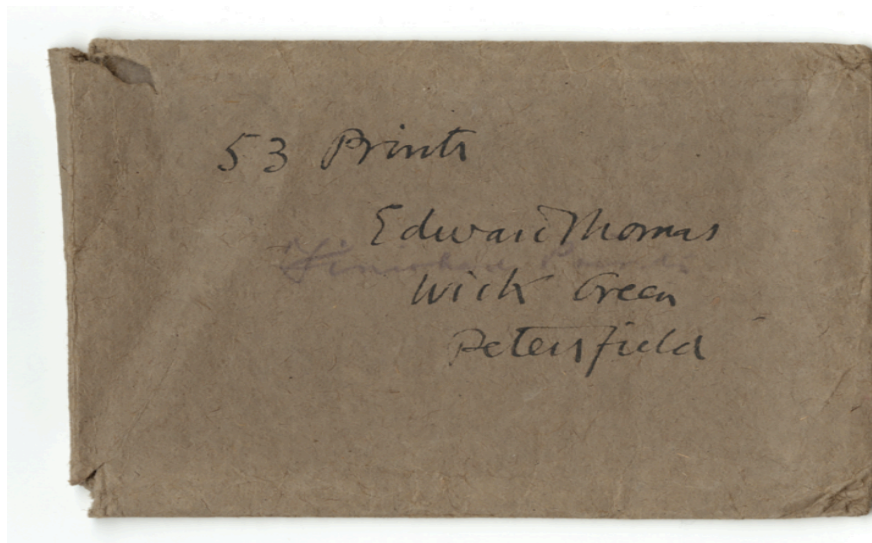 53 Prints
Edward Thomas
Wick Green
Petersfield